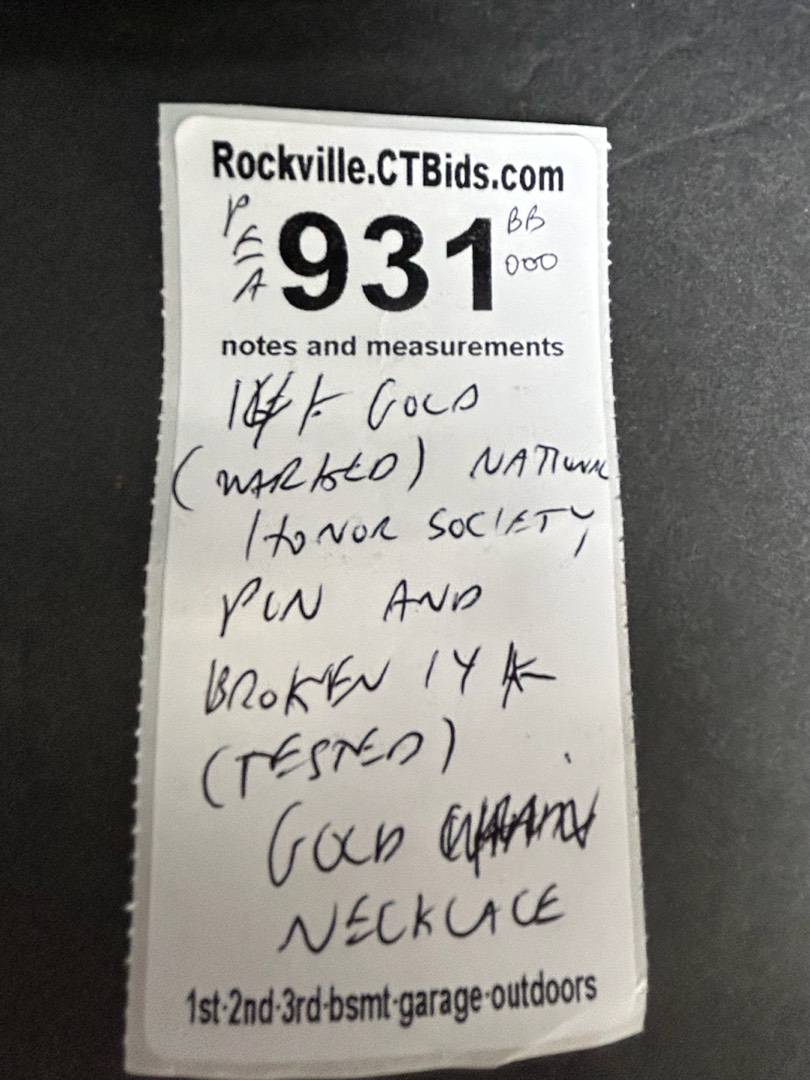 Rockville.CTBids.com
PEA 931 BB
000
notes and measurements
GOLD
(MARKED) NATIONAL
HONOR SOCIETY
PIN AND
BROKEN 14 K
(TESTED)
GOLD
NECKLACE
1st-2nd-3rd-bsmt-garage-outdoors